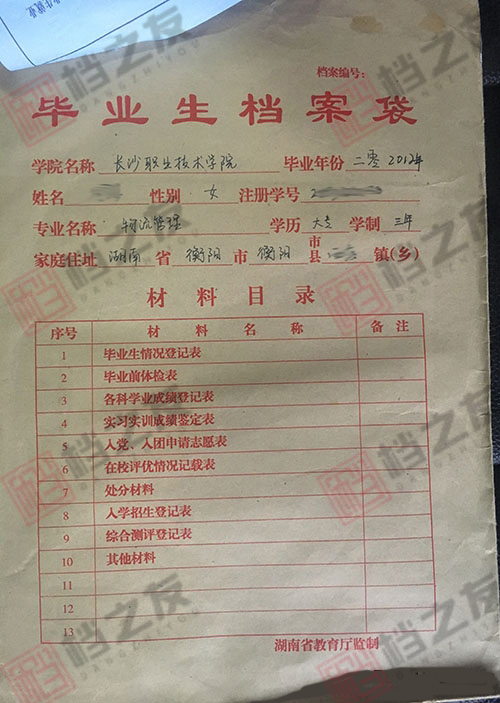 档案编号：
毕业生档案袋
学院名称 长沙职业技术学院 毕业年份 二零2012年
姓名 性别 女 注册学号
专业名称 物流管理 学历 大专 学制 三年
家庭住址 湖南 省 衡阳 市 衡阳 市县 镇(乡)
材料目录
序号 材料名称 备注
1 毕业生情况登记表
2 毕业前体检表
3 各科学业成绩登记表
4 实习实训成绩鉴定表
5 入党、入团申请志愿表
6 在校评优情况记载表
7 处分材料
8 入学招生登记表
9 综合测评登记表
10 其他材料
11
12
13
湖南省教育厅监制
档之友